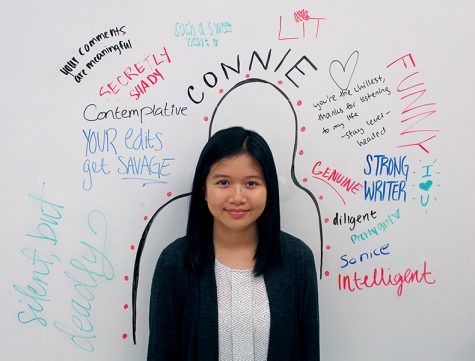 such a sweet
heart
LIT
your comments
are meaningful
SECRETLY
SHADY
CONNIE
Contemplative
YOUR edits
get SAVAGE
silent, but
deadly
you're the chillest,
thanks for listening
to my life
-stay level-
headed
FUNNY
GENUINE
STRONG
WRITER
I ♡
U
diligent
pretty girl
So nice
Intelligent